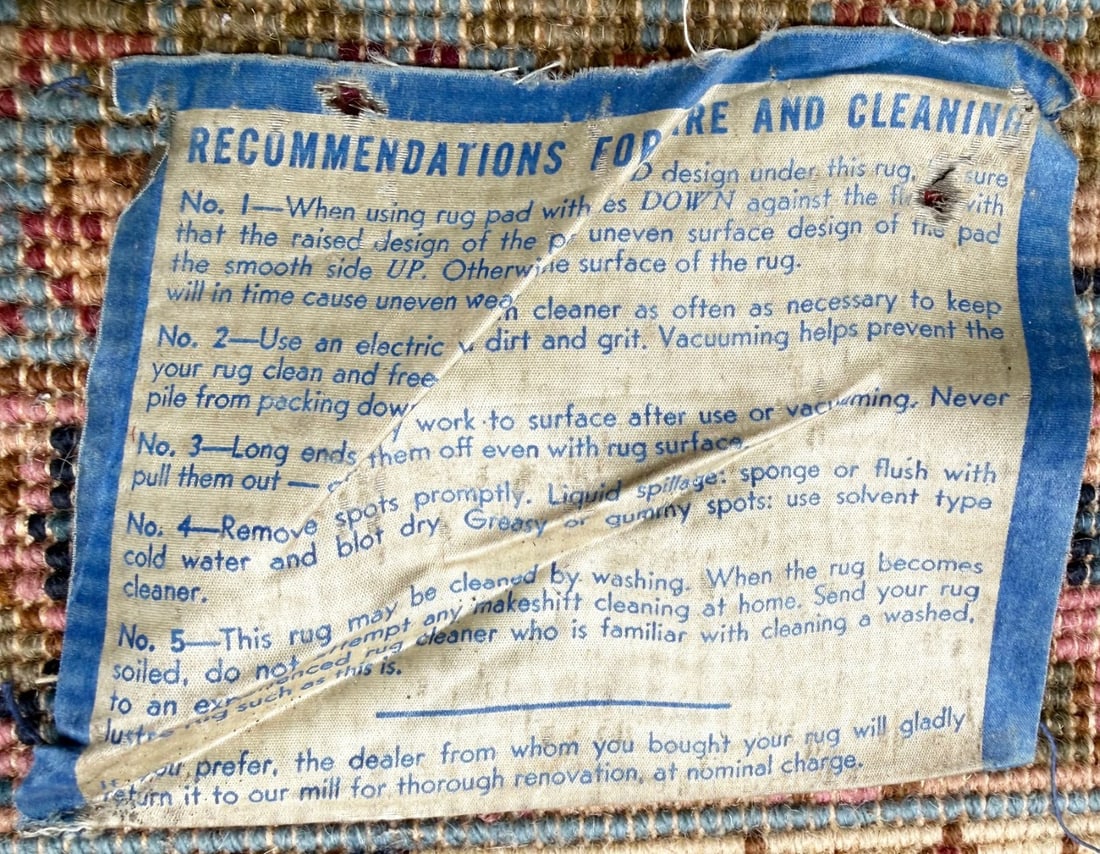 RECOMMENDATIONS FOR AND CLEANING
No. 1—When using rug pad with design under this rug, sure
that the raised design of the DOWN against the with
the smooth side UP. Otherwise uneven surface design of the pad
will in time cause uneven wear surface of the rug.
No. 2—Use an electric cleaner as often as necessary to keep
your rug clean and free dirt and grit. Vacuuming helps prevent the
pile from packing down
No. 3—Long ends work to surface after use or vacuuming. Never
pull them out — them off even with rug surface.
No. 4—Remove spots promptly. Liquid spillage: sponge or flush with
cold water and blot dry. Greasy or gummy spots: use solvent type
cleaner.
No. 5—This rug may be cleaned by washing. When the rug becomes
soiled, do not attempt any makeshift cleaning at home. Send your rug
to an experienced rug cleaner who is familiar with cleaning a washed,
lustre rug such as this is.
you prefer, the dealer from whom you bought your rug will gladly
return it to our mill for thorough renovation, at nominal charge.